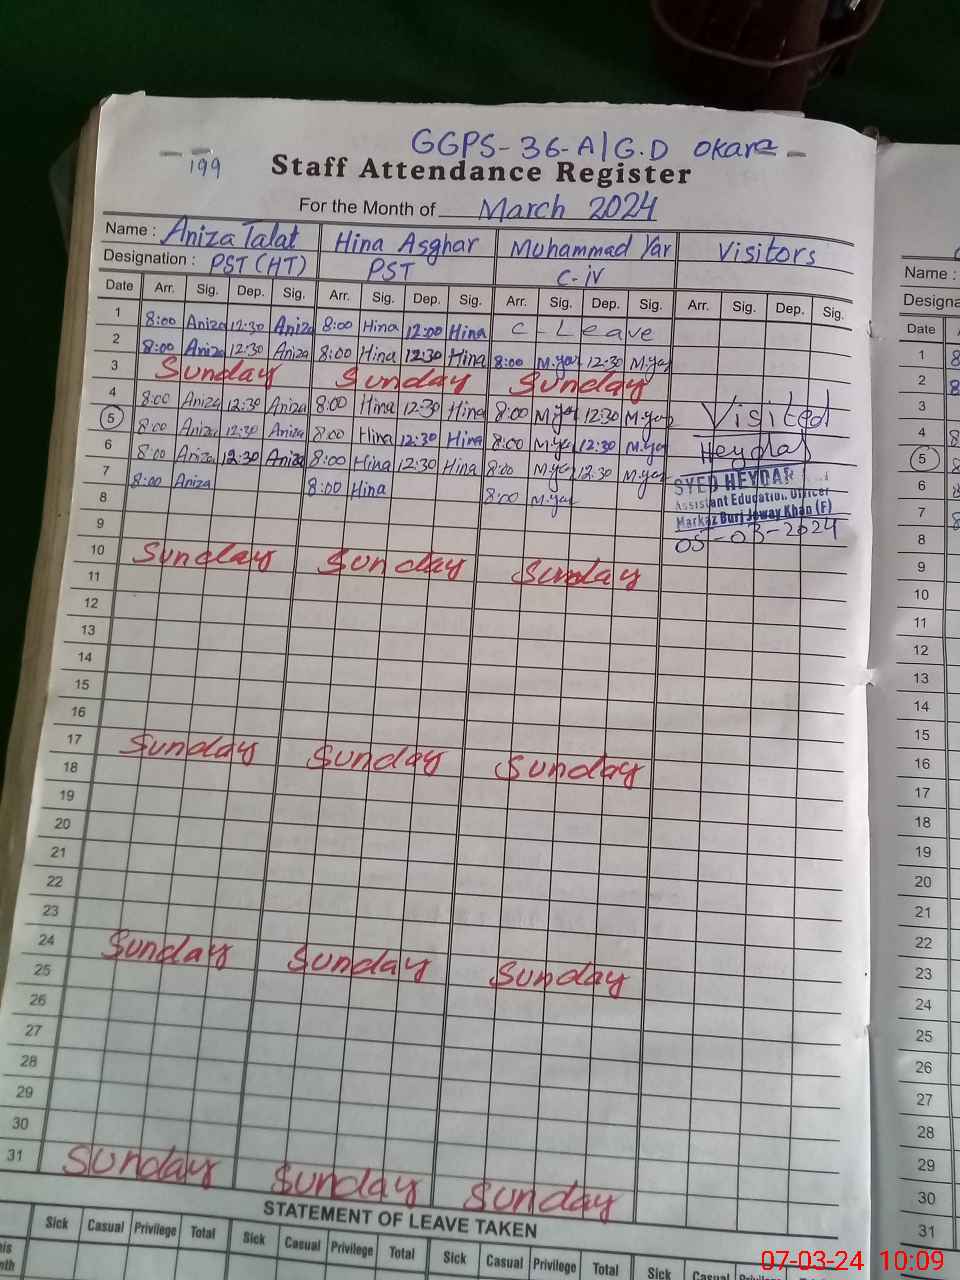 GGPS-36-A/G.D Okara
199
Staff Attendance Register
For the Month of March 2024
Name : Aniza Talat Hina Asghar Muhammad Yar Visitors
Designation : PST (HT) PST C-iv
Date Arr. Sig. Dep. Sig. Arr. Sig. Dep. Sig. Arr. Sig. Dep. Sig. Arr. Sig. Dep. Sig.
1 8:00 Aniza 12:30 Aniza 8:00 Hina 12:00 Hina C-Leave
2 8:00 Aniza 12:30 Aniza 8:00 Hina 12:30 Hina 8:00 M.yar 12:30 M.yar
3 Sunday Sunday Sunday
4 8:00 Aniza 12:30 Aniza 8:00 Hina 12:30 Hina 8:00 M.yar 12:30 M.yar Visited
5 8:00 Aniza 12:30 Aniza 8:00 Hina 12:30 Hina 8:00 M.yar 12:30 M.yar Heydar
6 8:00 Aniza 12:30 Aniza 8:00 Hina 12:30 Hina 8:00 M.yar 12:30 M.yar SYED HEYDAR
7 8:00 Aniza 8:00 Hina 8:00 M.yar Assistant Education Officer
Markaz Burj Jeway Khan (F)
8 05-03-2024
9
10 Sunday Sunday Sunday
11
12
13
14
15
16
17 Sunday Sunday Sunday
18
19
20
21
22
23
24 Sunday Sunday Sunday
25
26
27
28
29
30
31 Sunday Sunday Sunday
STATEMENT OF LEAVE TAKEN
Sick Casual Privilege Total Sick Casual Privilege Total Sick Casual Privilege Total Sick Casual
Name :
Date
1 8
2 8
3
4 8
5 8
6 8
7 8
8
9
10
11
12
13
14
15
16
17
18
19
20
21
22
23
24
25
26
27
28
29
30
31
07-03-24 10:09